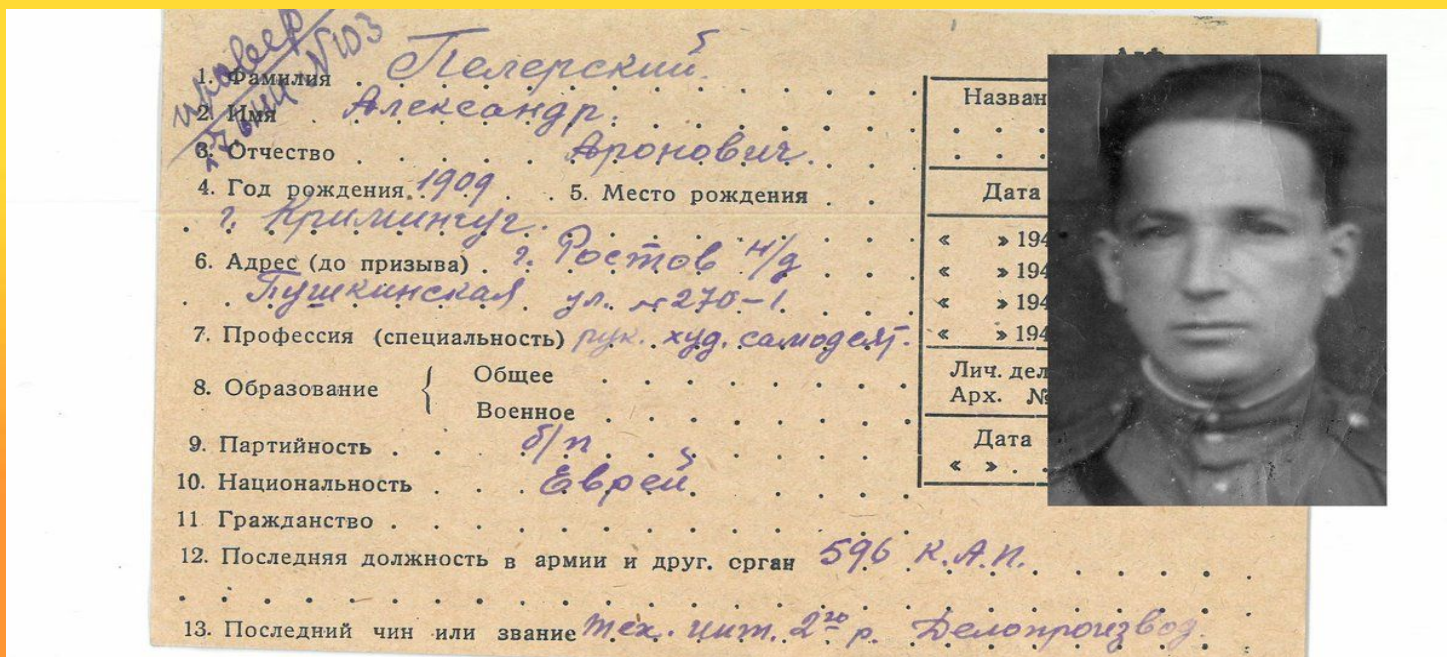 N103
1. Фамилия . Печерский.
2. Имя . Александр.
3. Отчество . . . . . Аронович.
4. Год рождения 1909 . . 5. Место рождения . .
г. Криминчуг.
6. Адрес (до призыва) . г. Ростов н/д
Пушкинская ул. № 270-1.
7. Профессия (специальность) рук. худ. самодеят.
8. Образование { Общее
Военное
9. Партийность . . б/п
10. Национальность . . . Еврей
11 Гражданство
12. Последняя должность в армии и друг. орган 596 К.А.П.
13. Последний чин или звание тех. инт. 2го р. Делопроизвод.
Назван
Дата
« » 194
« » 194
« » 194
« » 194
Лич. дел
Арх. №
Дата
« » .